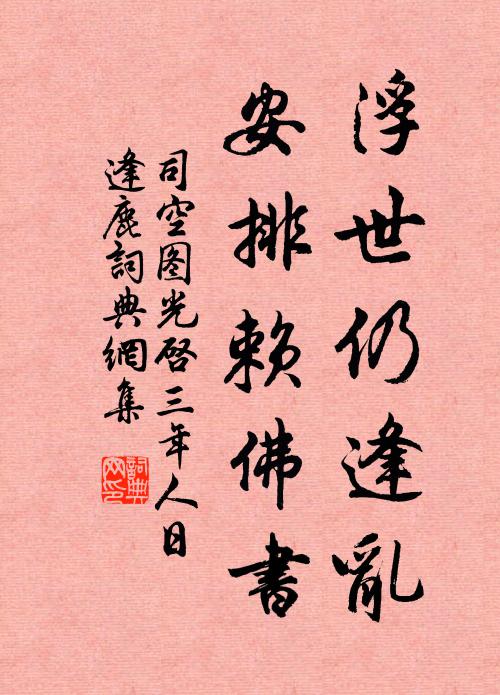 浮世仍逢亂
安排賴佛書
司空图光啓三年人日
逢鹿詞典網集
詞典网印